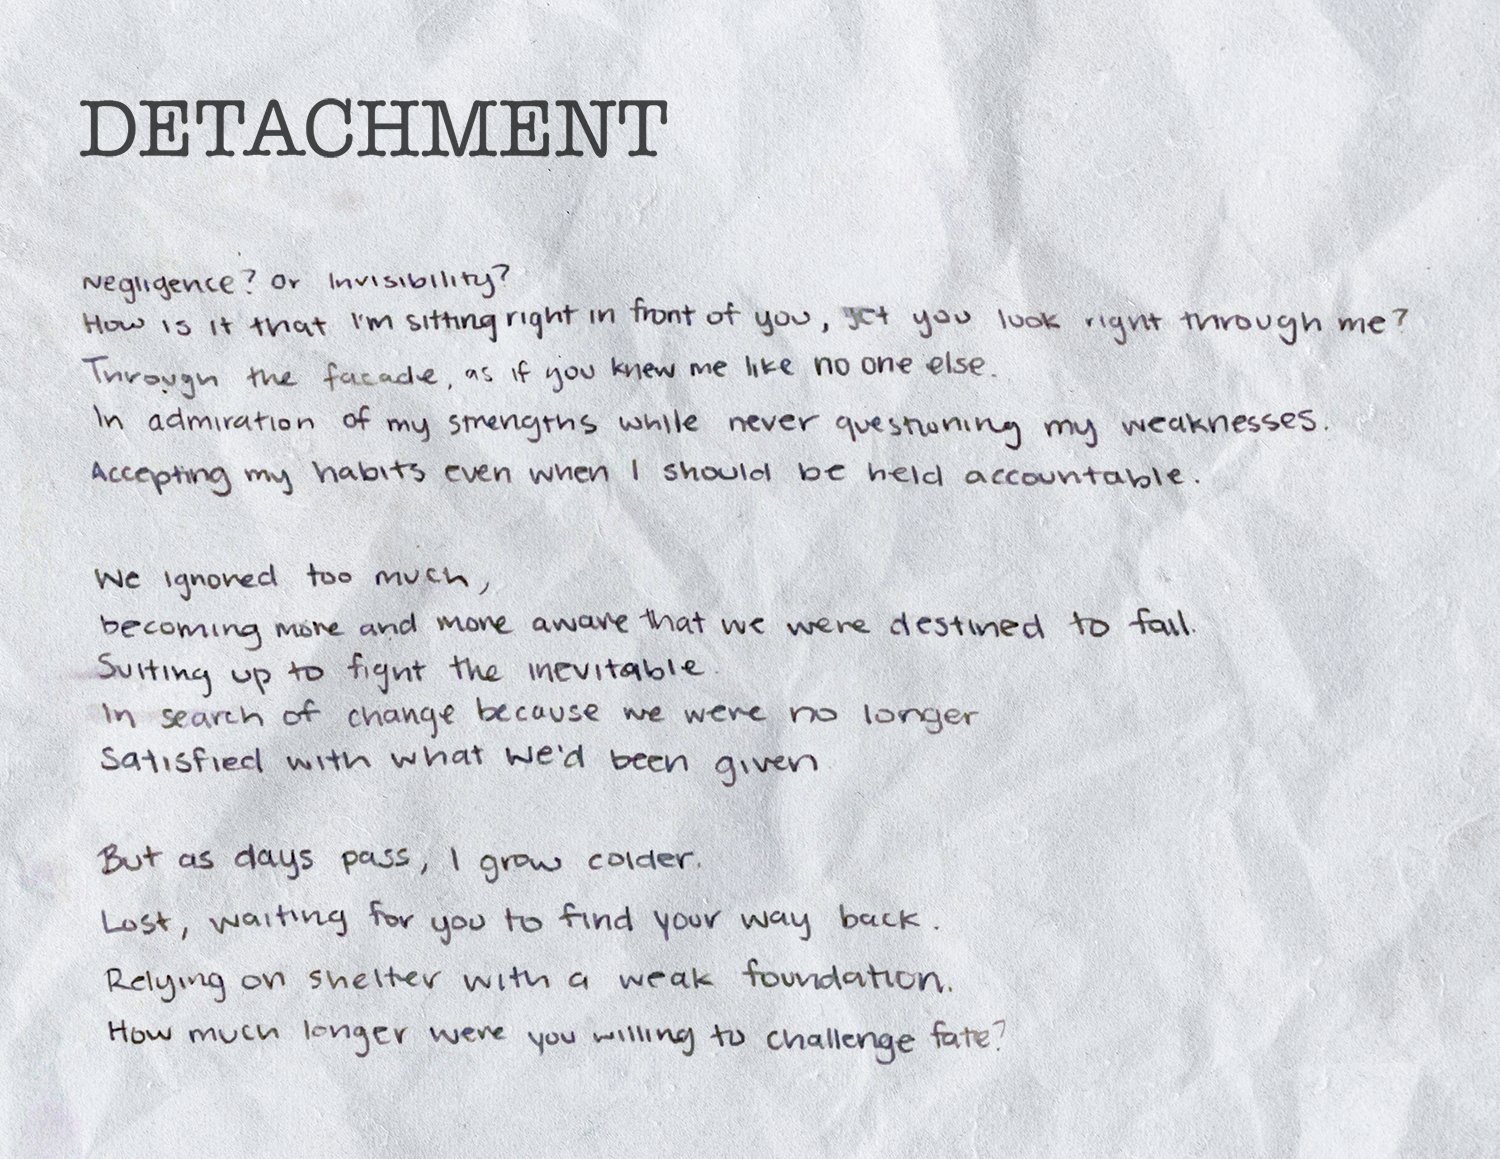 DETACHMENT
Negligence? Or Invisibility?
How is it that I'm sitting right in front of you, yet you look right through me?
Through the facade, as if you knew me like no one else.
In admiration of my strengths while never questioning my weaknesses.
Accepting my habits even when I should be held accountable.
We ignored too much,
becoming more and more aware that we were destined to fail.
Suiting up to fight the inevitable.
In search of change because we were no longer
Satisfied with what we'd been given
But as days pass, I grow colder.
Lost, waiting for you to find your way back.
Relying on shelter with a weak foundation.
How much longer were you willing to challenge fate?